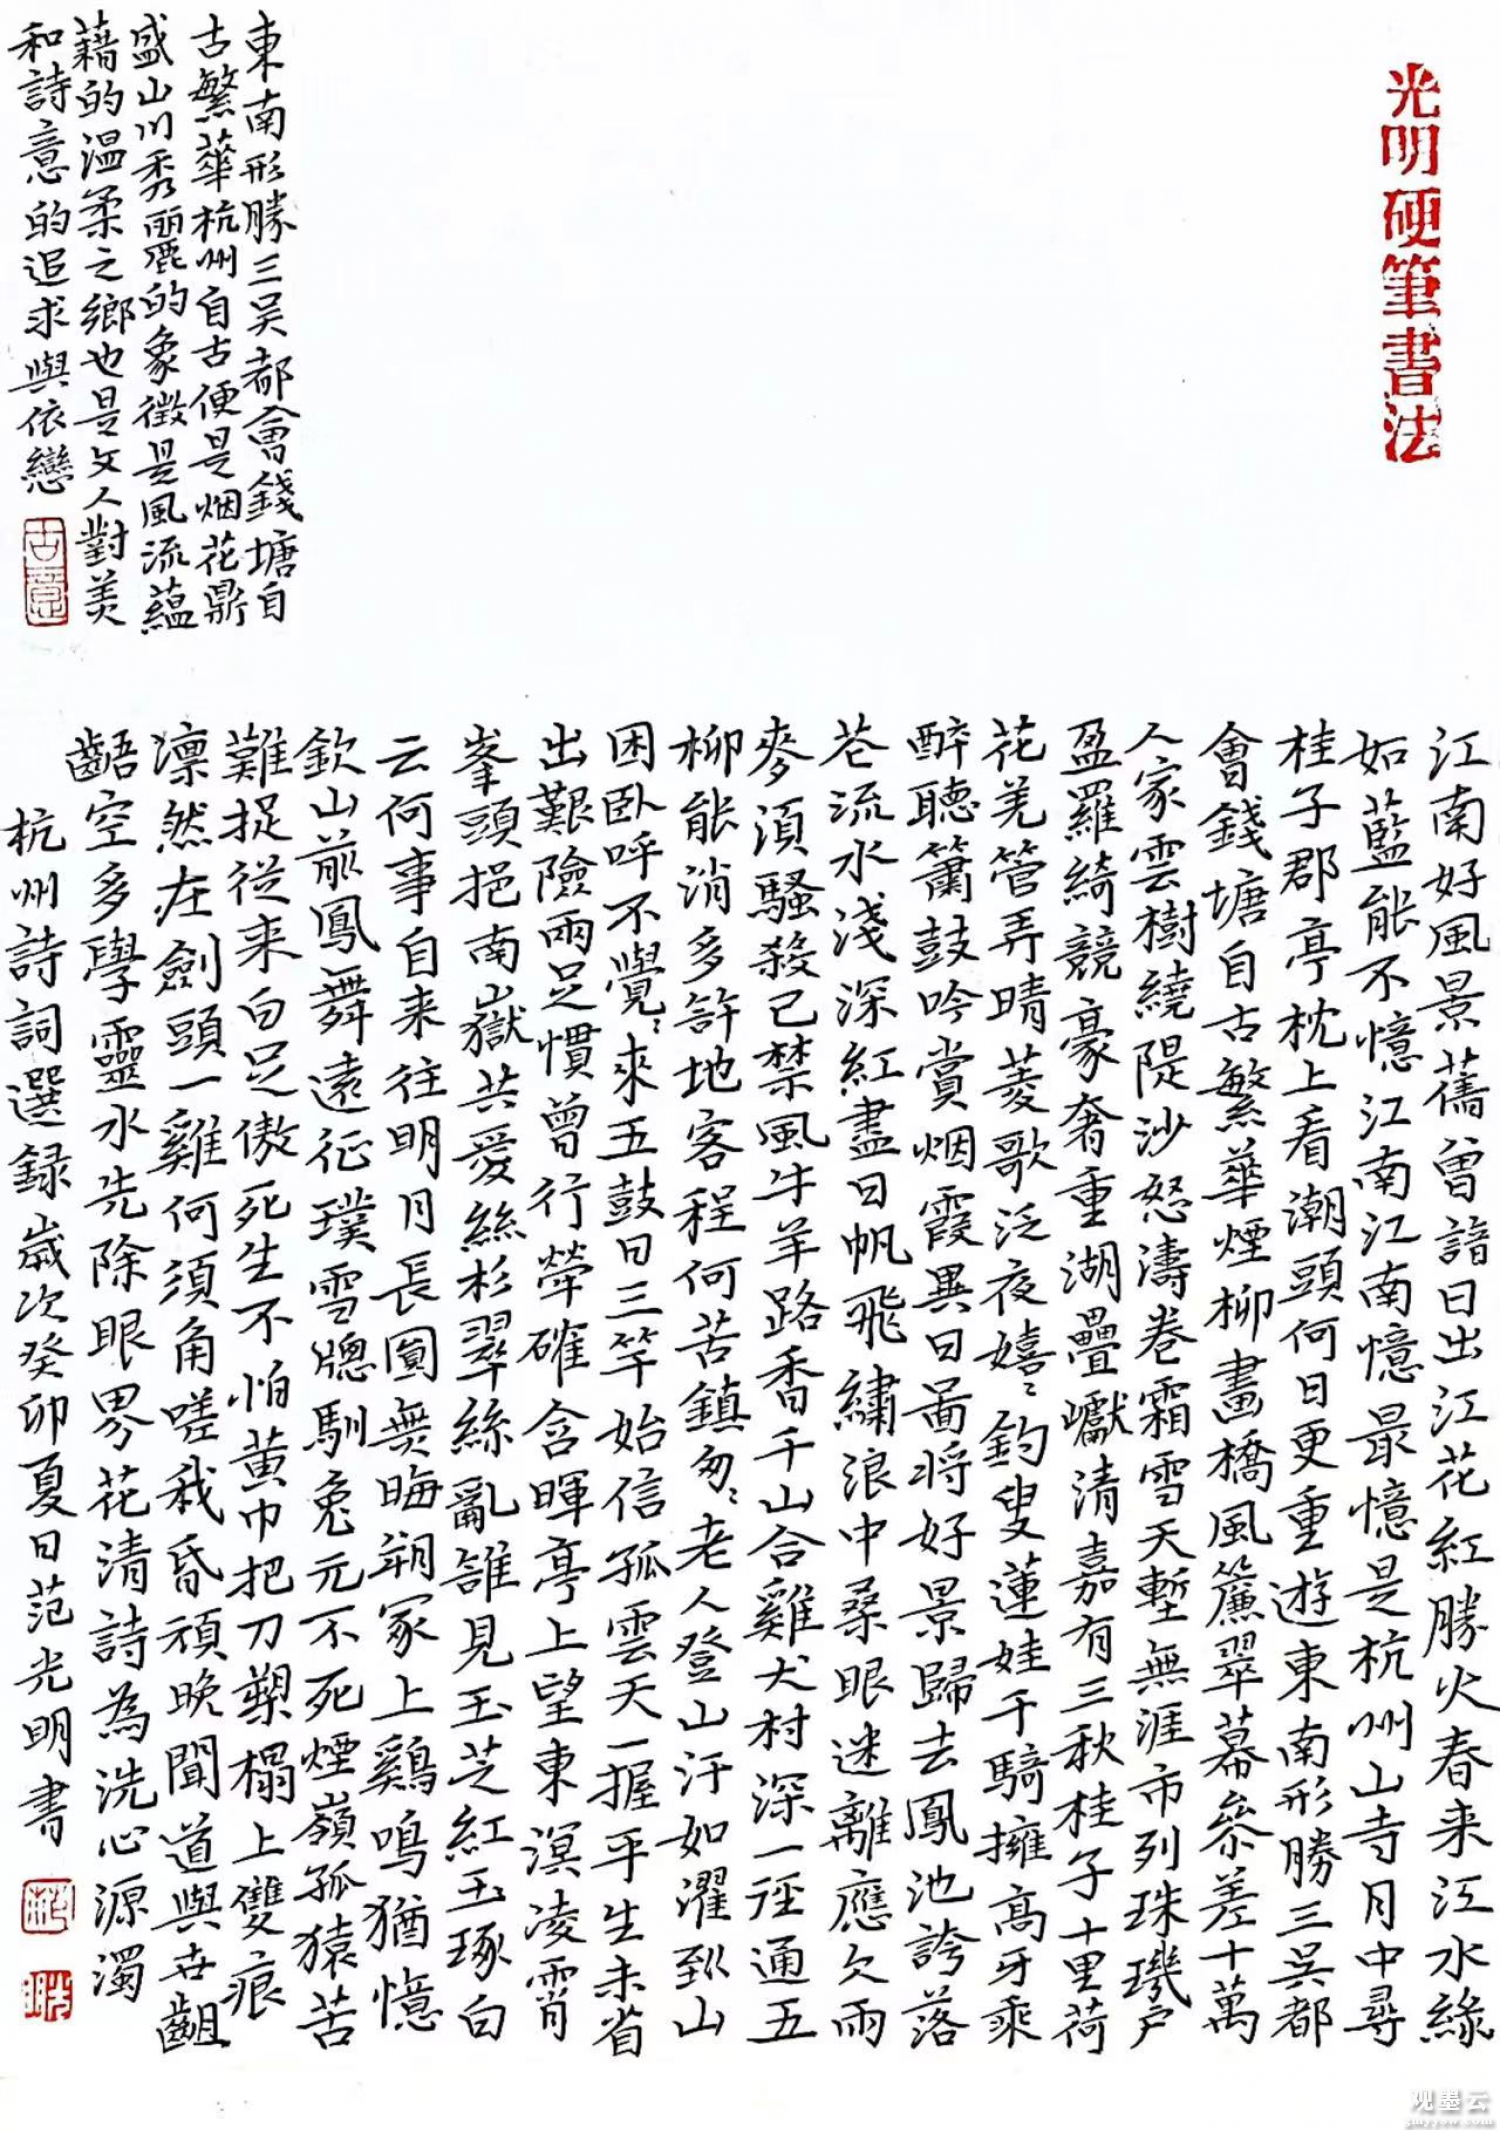 光明硬筆書法
江南好風景舊曾諳日出江花紅勝火春来江水綠
如藍能不憶江南江南憶最憶是杭州山寺月中尋
桂子郡亭枕上看潮頭何日更重遊東南形勝三吳都
會錢塘自古繁華煙柳畫橋風簾翠幕叅差十萬
人家雲樹繞隄沙怒濤卷霜雪天塹無涯市列珠璣戶
盈羅綺競豪奢重湖疊巘清嘉有三秋桂子十里荷
花羌管弄晴菱歌泛夜嬉〻釣叟蓮娃千騎擁高牙乘
醉聽簫鼓吟賞烟霞異日啚将好景歸去鳳池誇落
花流水淺深紅盡日帆飛繡浪中桑眼迷離應欠雨
麥須騷殺已禁風牛羊路香千山合雞犬村深一徑通五
柳能消多許地客程何苦鎮匆〻老人登山汗如濯到山
困卧呼不覺〻來五鼓日三竿始信孤雲天一握平生未省
出艱險兩足慣曾行犖確含暉亭上望東溟凌霄
峯頭挹南嶽共愛絲杉翠絲亂誰見玉芝紅玉琢白
云何事自来往明月長圓無晦朔冢上鷄鳴猶憶
欽山前鳳舞遠征璞雪牕馴兔元不死煙嶺孤猿苦
難捉從来白足傲死生不怕黄巾把刀槊榻上雙痕
凛然在劍頭一雞何須角嗟我昏頑晚聞道與世齟
齬空多學靈水先除眼界花清詩為洗心源濁
杭州詩詞選録歲次癸卯夏日范光明書
東南形勝三吴都會錢塘自
古繁華杭州自古便是烟花鼎
盛山川秀麗的象徵是風流蘊
藉的温柔之鄉也是文人對美
和詩意的追求與依戀
古意
观墨云
gmyyun.com